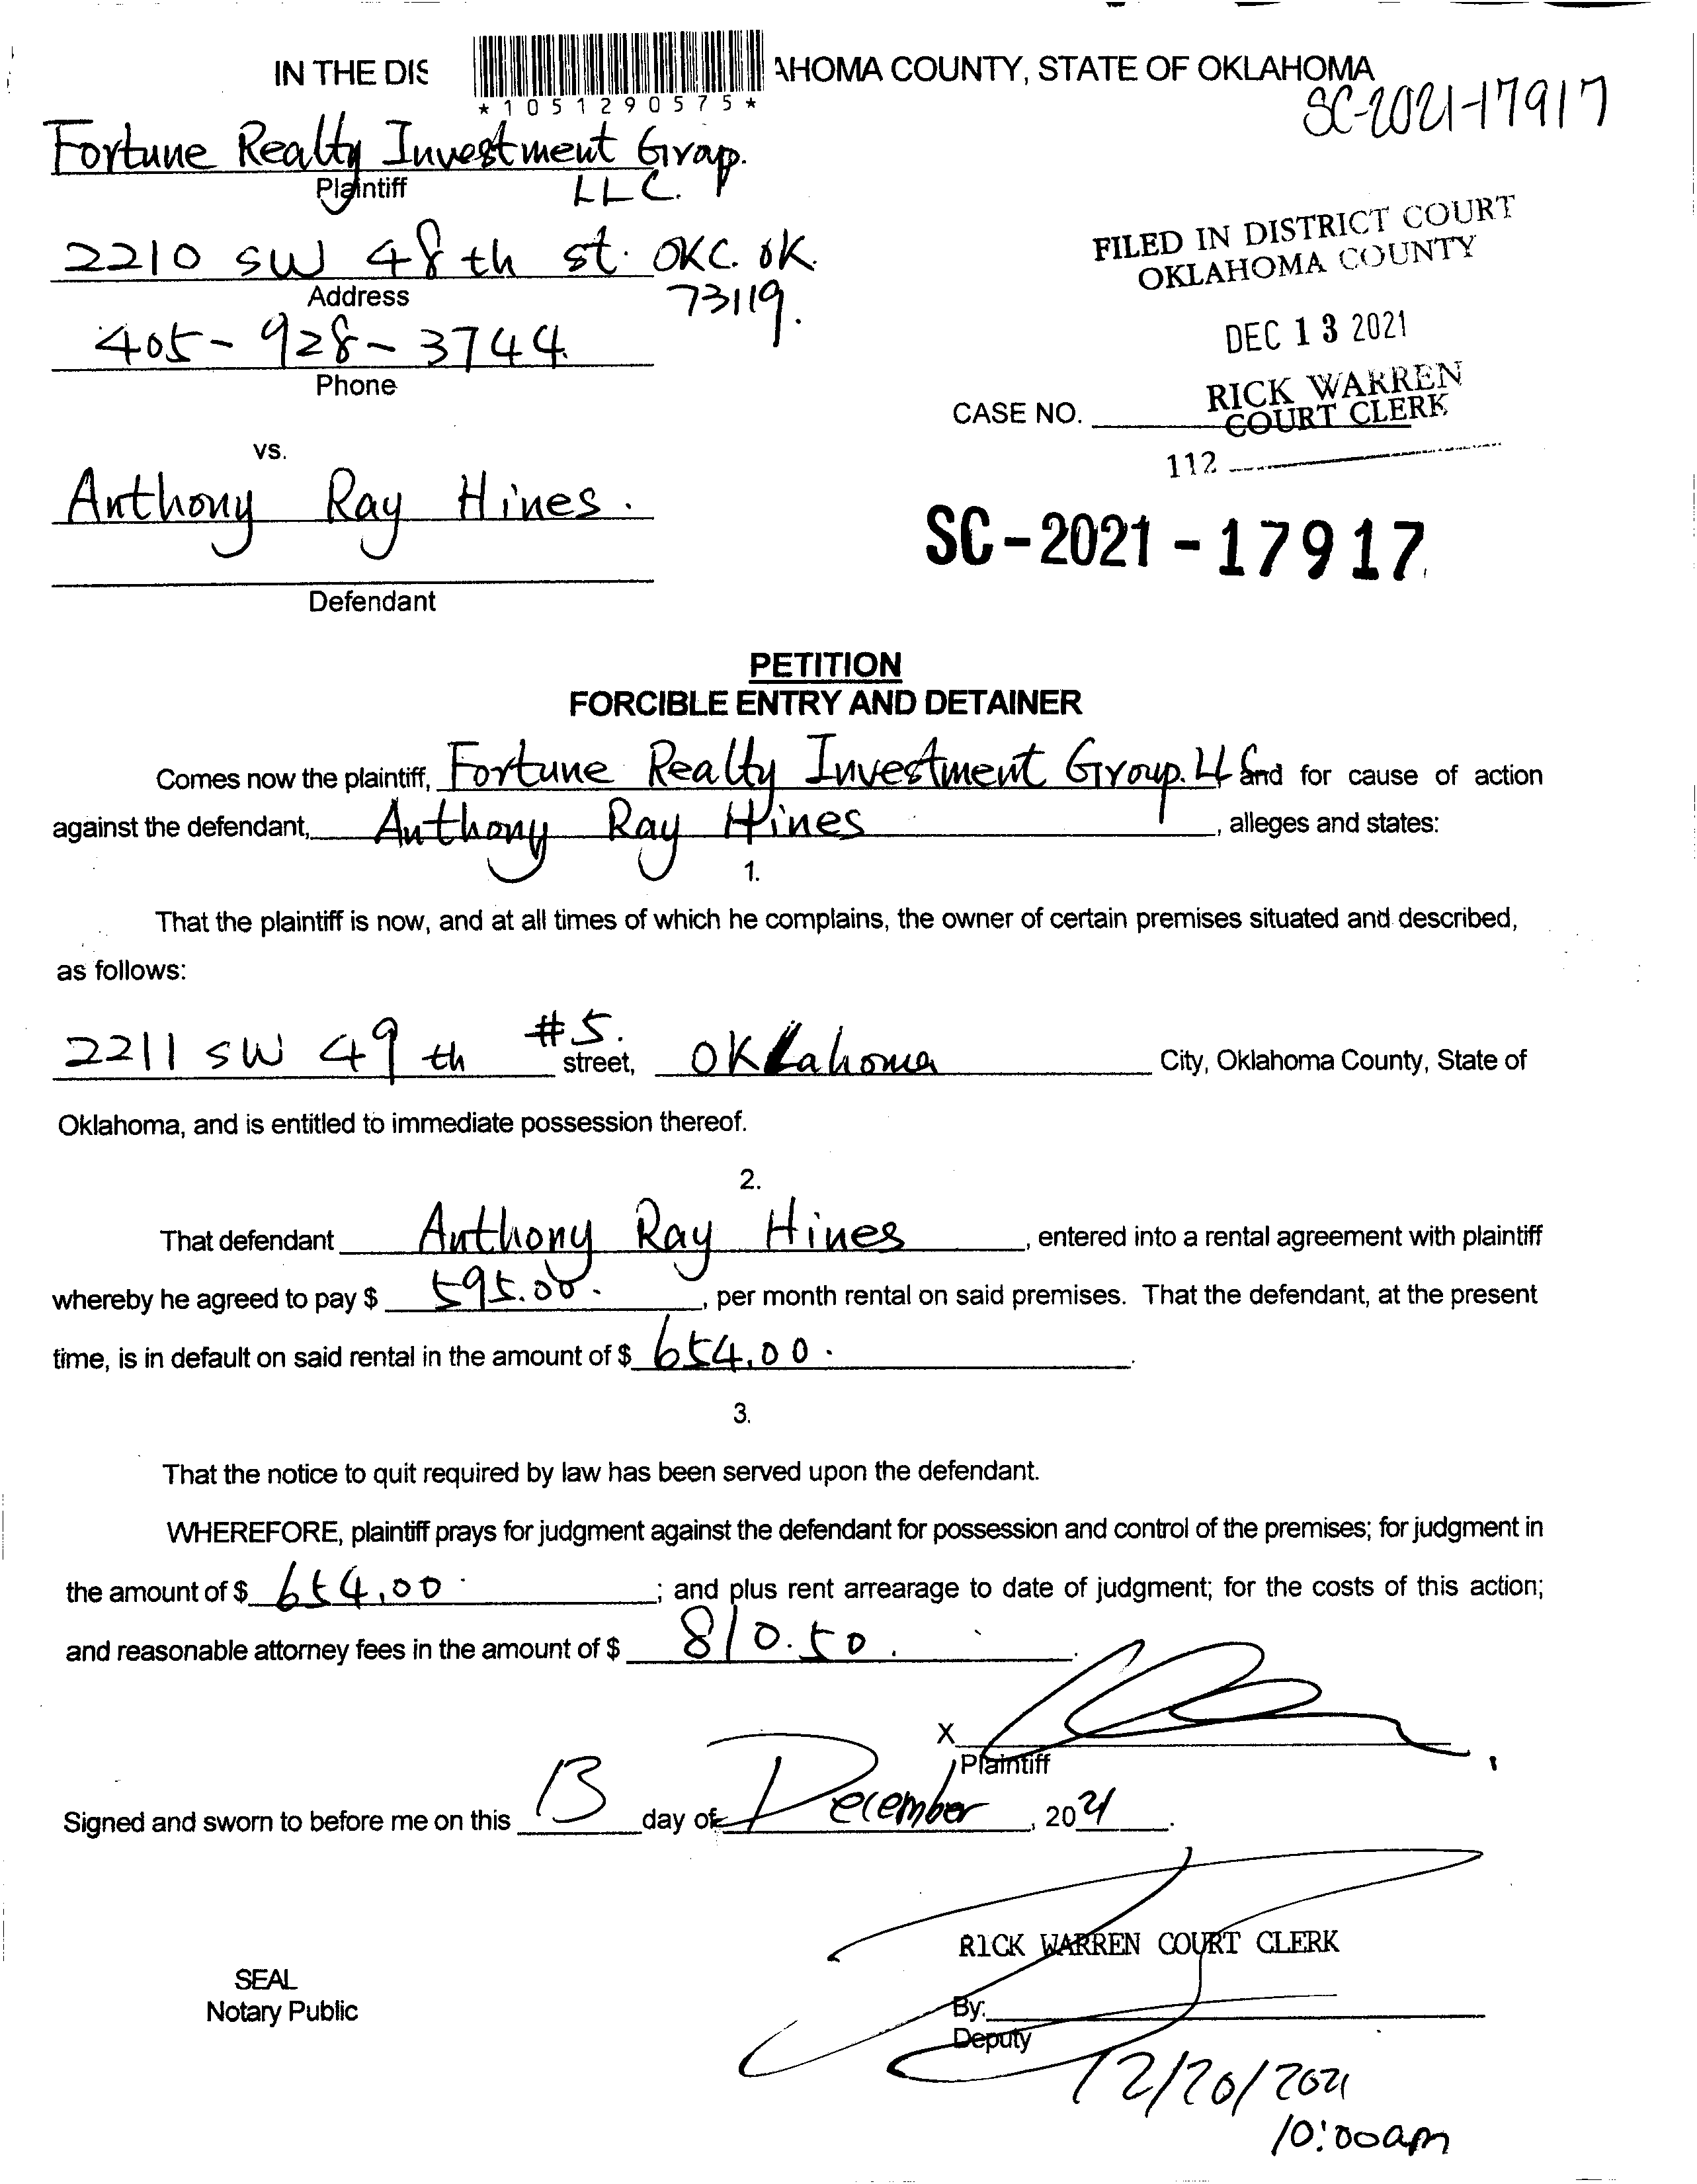 IN THE DIS
AHOMA COUNTY, STATE OF OKLAHOMA
*1051290575*
SC-2021-17917
Fortune Realty Investment Group.
LLC.
Plaintiff
2210 SW 48th st. OKC. OK.
73119.
Address
405-928-3744.
Phone
FILED IN DISTRICT COURT
OKLAHOMA COUNTY
DEC 13 2021
RICK WARREN
COURT CLERK
CASE NO.
112
vs.
Anthony Ray Hines.
Defendant
SC-2021-17917
PETITION
FORCIBLE ENTRY AND DETAINER
Comes now the plaintiff, Fortune Realty Investment Group. LLC and for cause of action
against the defendant, Anthony Ray Hines, alleges and states:
1.
That the plaintiff is now, and at all times of which he complains, the owner of certain premises situated and described,
as follows:
2211 SW 49th #5. street, Oklahoma City, Oklahoma County, State of
Oklahoma, and is entitled to immediate possession thereof.
2.
That defendant Anthony Ray Hines, entered into a rental agreement with plaintiff
whereby he agreed to pay $ 595.00., per month rental on said premises. That the defendant, at the present
time, is in default on said rental in the amount of $ 654.00.
3.
That the notice to quit required by law has been served upon the defendant.
WHEREFORE, plaintiff prays for judgment against the defendant for possession and control of the premises; for judgment in
the amount of $ 654.00.; and plus rent arrearage to date of judgment; for the costs of this action;
and reasonable attorney fees in the amount of $ 810.50.
X
Plaintiff
Signed and sworn to before me on this 13 day of December, 2021.
RICK WARREN COURT CLERK
SEAL
Notary Public
By:
Deputy
12/20/2021
10:00am